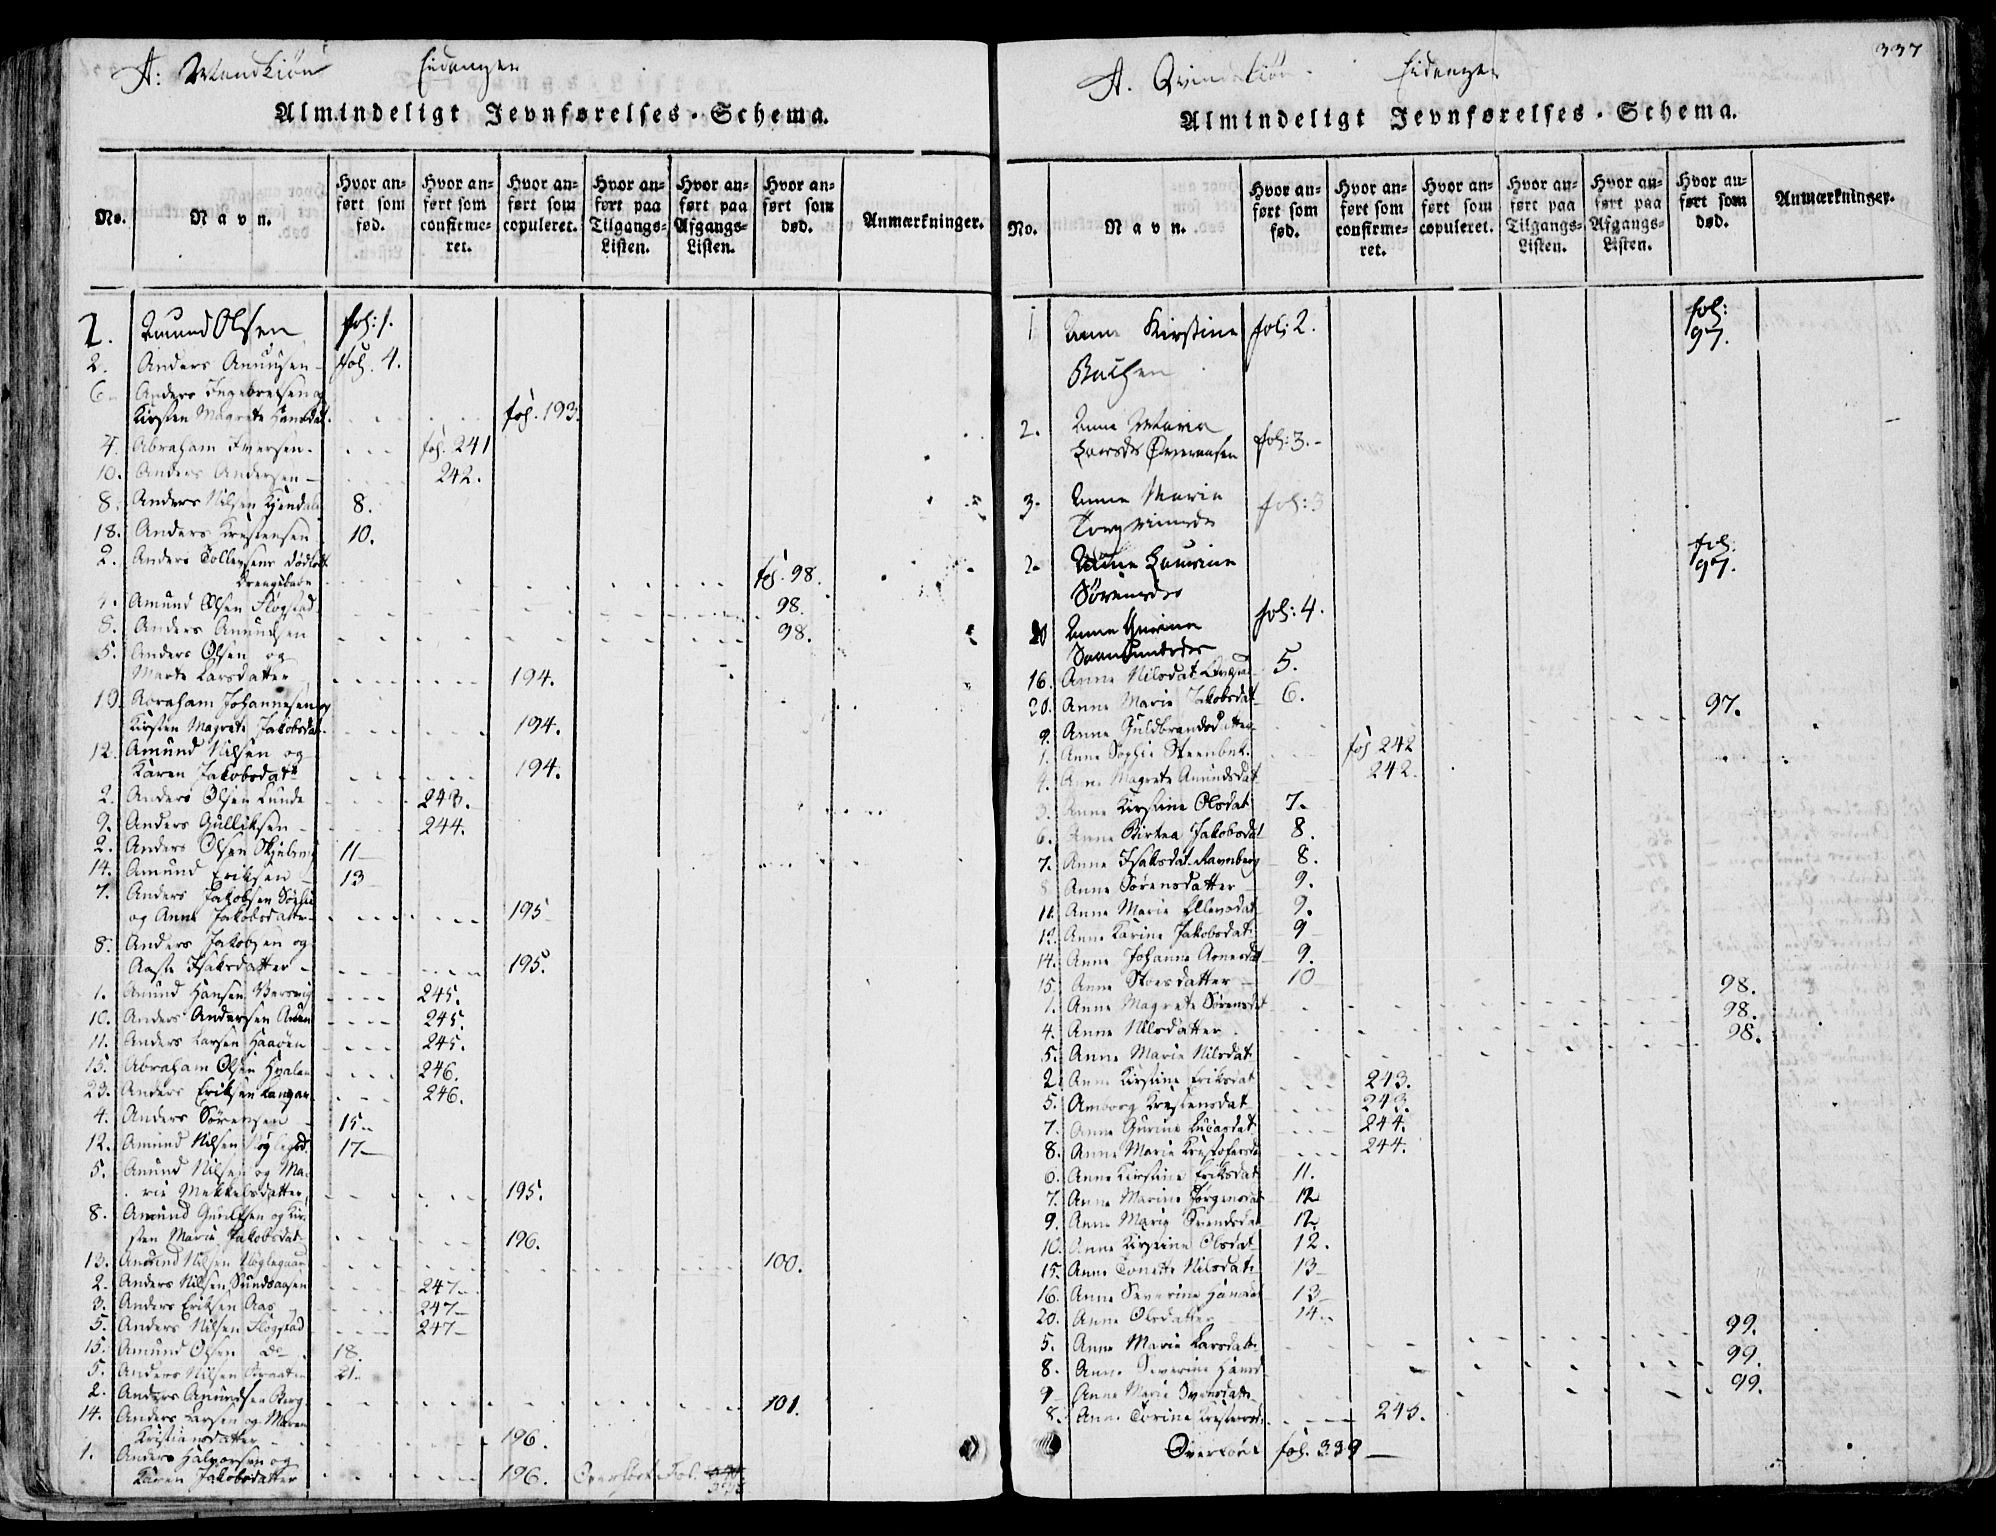 A: Mandkiøn Eidanger
Almindeligt Jevnførelses-Schema.
No. Navn. Hvor anført som fød. Hvor anført som confirmeret. Hvor anført som copuleret. Hvor anført paa Tilgangs-Listen. Hvor anført paa Afgangs-Listen. Hvor anført som død. Anmærkninger.
1. Amund Olsen fol: 1.
2. Anders Amundsen fol. 4.
6. Anders Ingebretsen og
Kirsten Magrete Hansdat. fol. 193.
4. Abraham Iversen. fol. 241
10. Anders Andersen 242.
8. Anders Nilsen 8.
18. Anders Kristensen 10.
2. Anders Tollevsens dødfødt
Drengebarn fol. 98.
4. Amund Olsen Flogstad 98.
8. Anders Amundsen 98.
5. Anders Olsen og
Marte Larsdatter 194.
10. Abraham Johannesen og
Kirsten Magrete Jakobsdat. 194.
12. Amund Nilsen og
Karen Jakobsdatr 194.
2. Anders Olsen Lunde 243.
9. Anders Gulliksen 244.
2. Anders Olsen 11
14. Amund Eriksen 13
7. Anders Jakobsen
og Anne Jakobsdatr 195
8. Anders Jakobsen og
Aaste Isaksdatter 195.
1. Amund Hansen Versvig 245.
10. Anders Andersen 245.
11. Anders Larsen Haaøen 245.
15. Abraham Olsen Hvalen 246.
23. Anders Eriksen Langan 246.
4. Anders Sørensen 15
12. Amund Nilsen 17
5. Amund Nilsen og Ma-
rie Mekkelsdatter 195.
8. Amund Gunulfsen og Kir-
sten Marie Jakobsdat. 196.
13. Amund Nilsen Nøglegaar 100.
2. Anders Nilsen Sundsaasen 247
3. Anders Eriksen Aas 247
5. Anders Nilsen Flogstad 247
15. Amund Olsen do 18.
5. Anders Nilsen 21.
2. Anders Amundsen Berg 101.
14. Anders Larsen og Maren
Kristiansdatter 196.
1. Anders Halvorsen og
Karen Jakobsdatter 196. Overført Fol.
337
A. Qvindekiøn. Eidanger
Almindeligt Jevnførelses-Schema.
No. Navn. Hvor anført som fød. Hvor anført som confirmeret. Hvor anført som copuleret. Hvor anført paa Tilgangs-Listen. Hvor anført paa Afgangs-Listen. Hvor anført som død. Anmærkninger.
1 Anne Kirstine fol: 2. fol: 97.
2. Anne Maria
Larsdr fol: 3.
3. Anne Maria fol: 3
2. Anne Laurine
Sørensdr fol. 97.
20 Anne Gurine
Saamundsdr fol: 4.
16. Anne Nilsdat. 5.
20. Anne Marie Jakobsdat 6.
9. Anne Guldbrandsdatter 97.
1. Anne Sophie Steenbuk. fol 242
4. Anne Magrete Amundsdat 242.
3. Anne Kirstine Olsdat 7.
6. Anne Birtea Jakobsdat 8.
7. Anne Isaksdat. Ravnberg 8.
8 Anne Sørensdatter 9.
11. Anne Marie Ellevsdat 9.
12. Anne Karine Jakobsdat. 9
14. Anne Johanne Arnesdat 9.
15. Anne Thoresdatter 10
1. Anne Magrete Sørensdat 98.
4. Anne Nilsdatter 98.
5. Anne Marie Nilsdat 98.
2. Anne Kirstine Eriksdat 243.
5. Amborg Kristensdat 243.
7. Anne Gurine Lucasdat 244.
8. Anne Marie Kristofersda 244.
6. Anne Kirstine Eriksdat 11.
7. Anne Marine Jørgensdat 12
9. Anne Marie Svendsdat 12
10. Anne Kirstine Olsdat 12.
15. Anne Tonette Nilsdat. 13
16. Anne Severine Hansdat 13
20. Anne Olsdatter 14.
5. Anne Marie Larsdatr 99.
8. Anne Severine Hansd 99.
9 Anne Marie 99.
8. Anne Torine 245.
Overført fol. 339